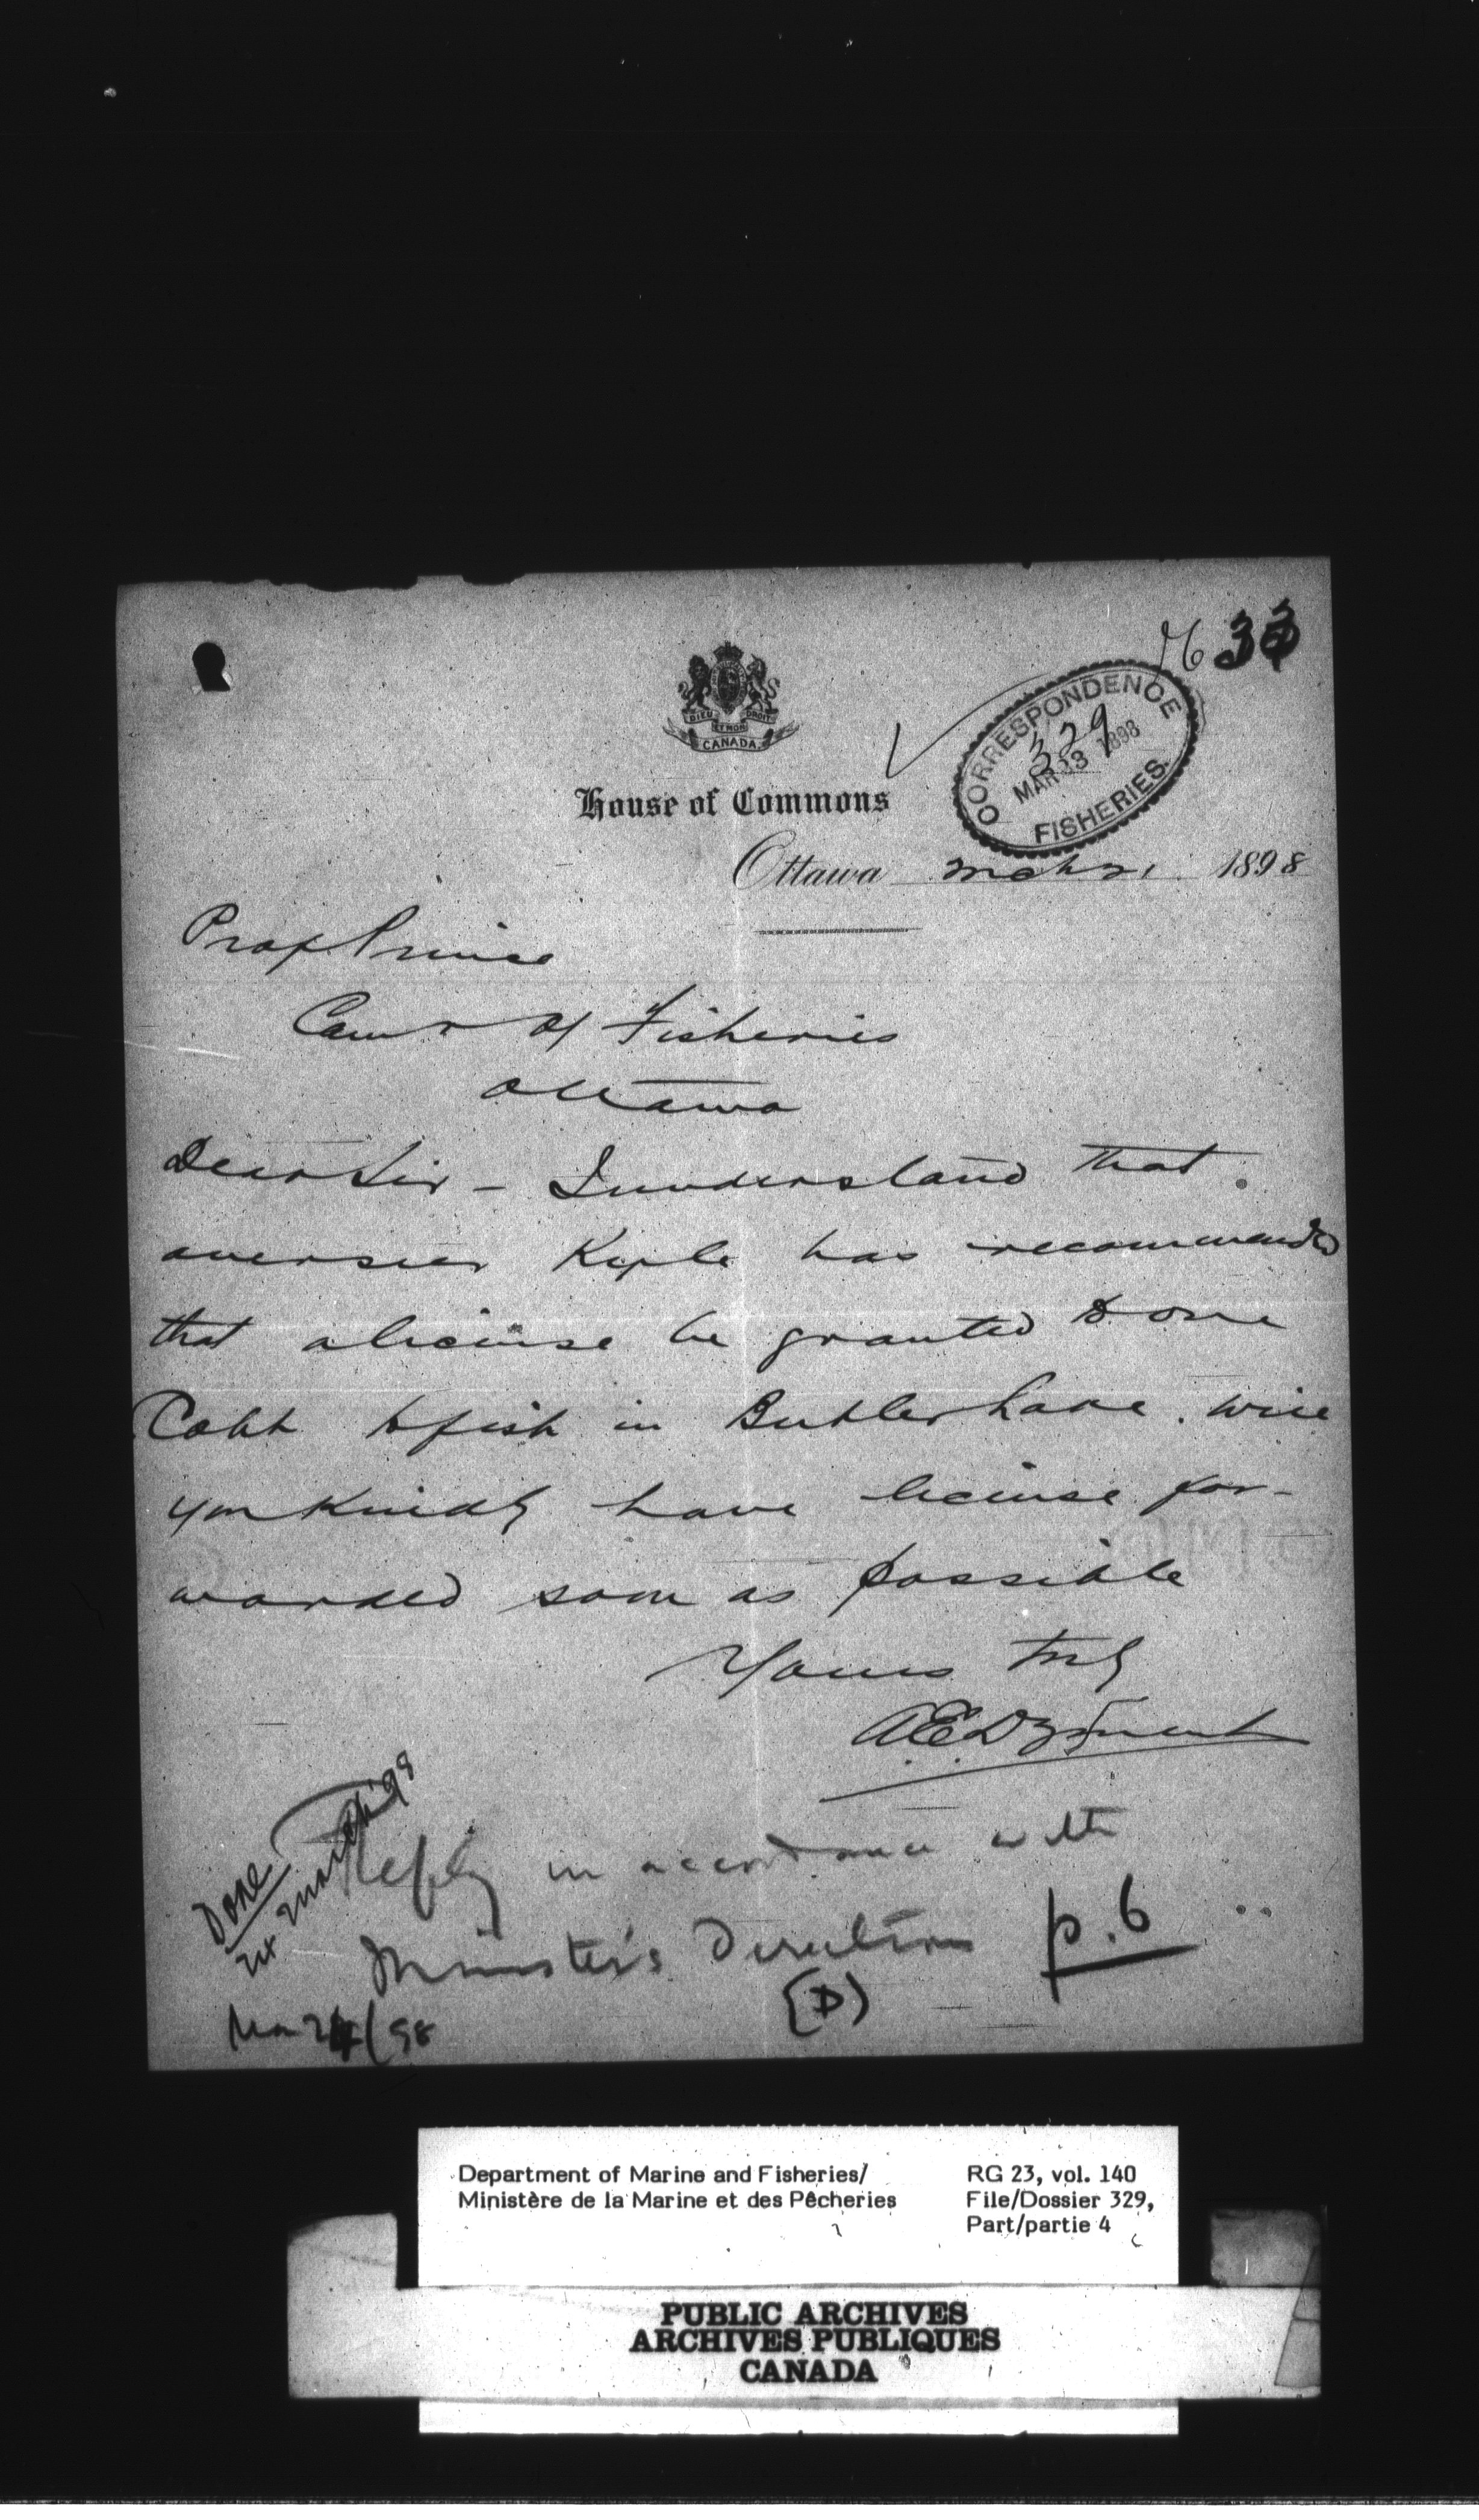 33
DIEU ET MON DROIT
CANADA
CORRESPONDENCE
329
MAR 23 1898
FISHERIES.
House of Commons
Ottawa Mch 21 1898
Prof Prince
Comr of Fisheries
Ottawa
Dear Sir - I understand that
overseer has recommended
that a license be granted to one
Cobb to fish in Butler Lake. Will
you kindly have license for-
warded soon as possible
Yours truly
A.E. Dyment
Done
24 March '98
Reply in accordance with
Minister's Directions p. 6
(D)
Mar 24/98
Department of Marine and Fisheries/
Ministère de la Marine et des Pêcheries
RG 23, vol. 140
File/Dossier 329,
Part/partie 4
PUBLIC ARCHIVES
ARCHIVES PUBLIQUES
CANADA